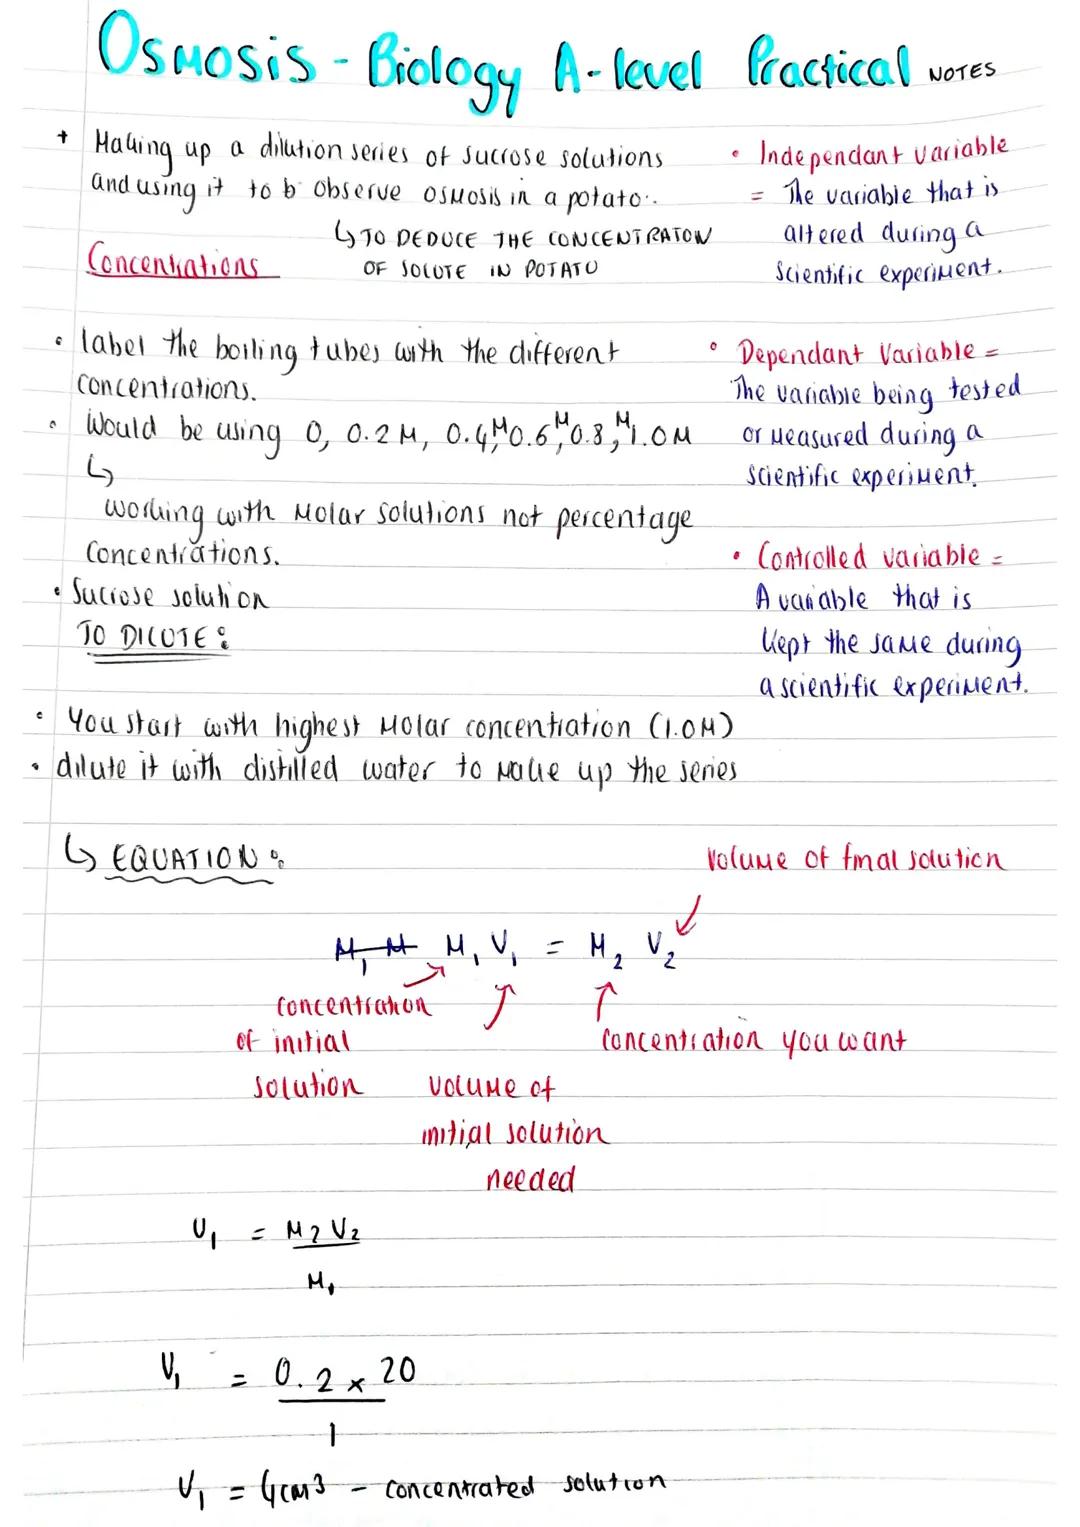 Osmosis - Biology A-level Practical NOTES
+ Making up a dilution series of sucrose solutions
and using it to b observe osmosis in a potato..
↳ TO DEDUCE THE CONCENTRATON
OF SOLUTE IN POTATO
Concentrations
• label the boiling tubes with the different
concentrations.
• Would be using 0, 0.2M, 0.4M, 0.6M, 0.8M, 1.0M
↳
working with Molar solutions not percentage
concentrations.
• Sucrose solution
TO DILUTE:
• You start with highest Molar concentration (1.0M)
• dilute it with distilled water to make up the series
• Independant variable
= The variable that is
altered during a
scientific experiment.
• Dependant Variable =
The variable being tested
or measured during a
scientific experiment.
• Controlled variable =
A variable that is
kept the same during
a scientific experiment.
↳ EQUATION:
Volume of final solution
M₁ M M₁ V₁ = M₂ V₂
concentration
of initial
solution
volume of
initial solution
needed
concentration you want
V₁ = M₂ V₂
M₁
V₁ = 0.2 × 20
1
V₁ = 4cm³ - concentrated solution